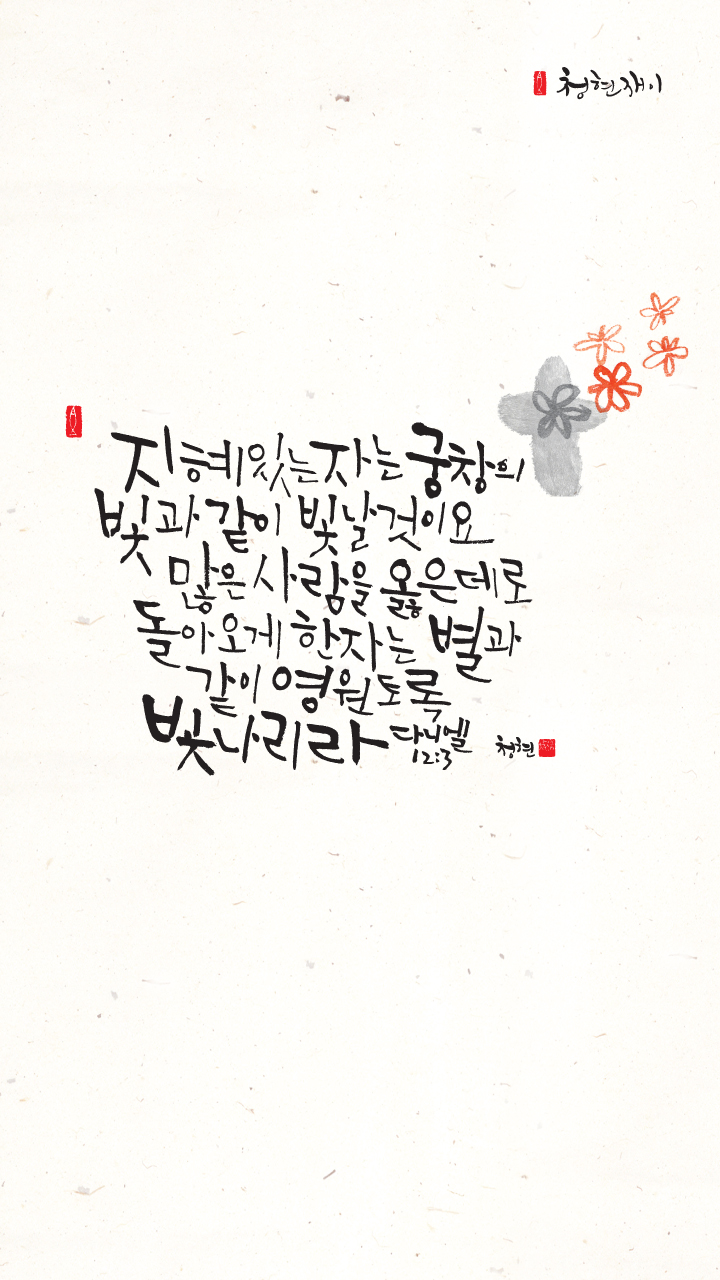 청현재이
지혜있는자는궁창의
빛과같이 빛날것이요
많은 사람을 옳은데로
돌아오게 한자는 별과
같이 영원토록
빛나리라 다니엘
12:3
청현